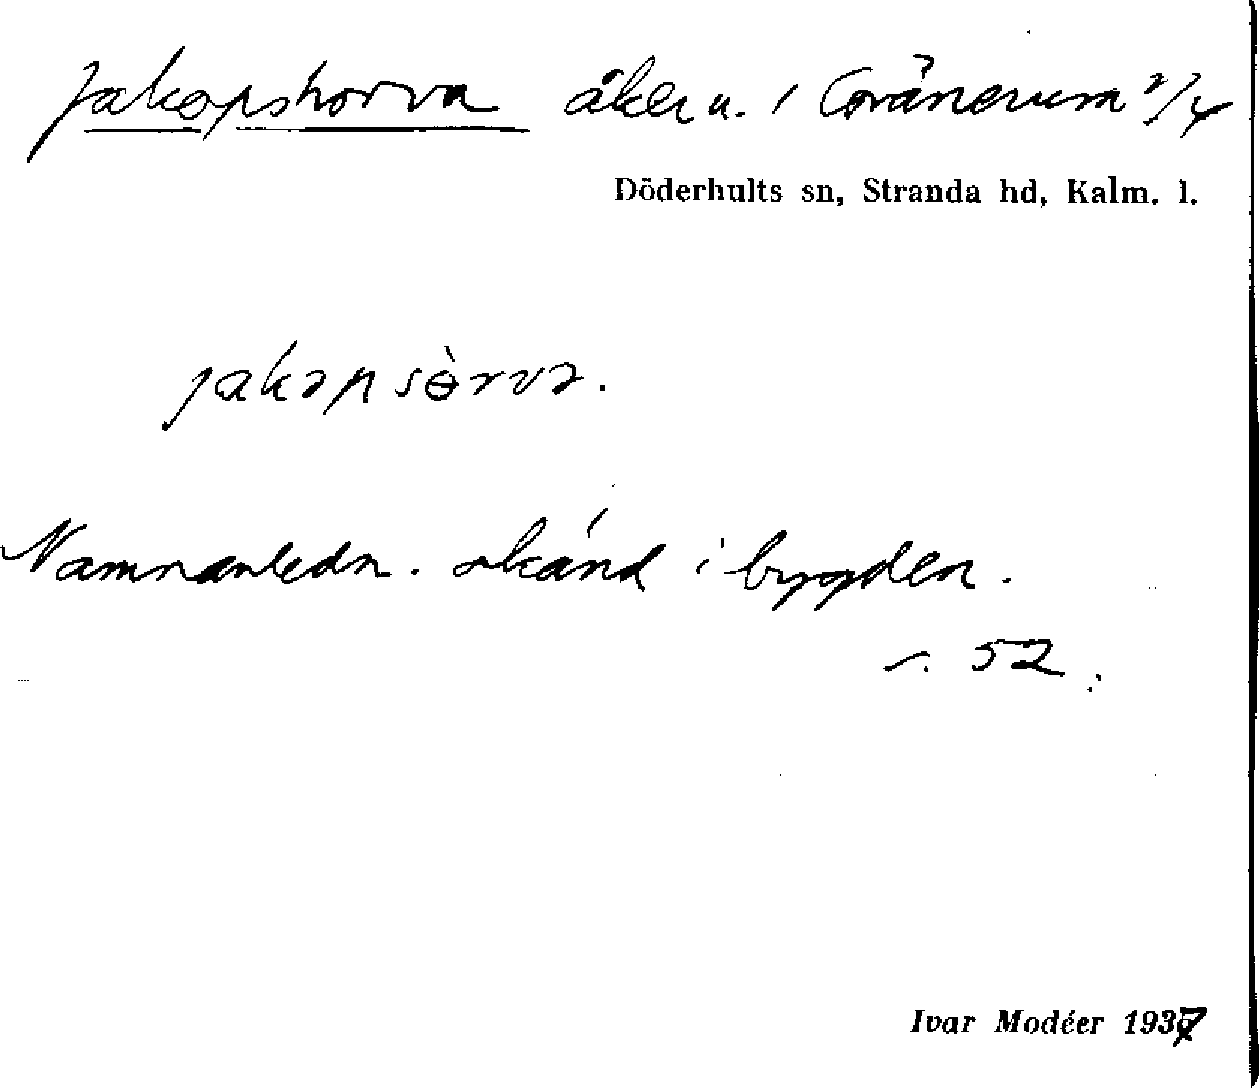 Jakopshorva åker u. / Gränerum 2/4
Döderhults sn, Stranda hd, Kalm. l.
jakəpsɵ̀rva.
Namnanledn. okänd i bygden.
s. 52.
Ivar Modéer 1937